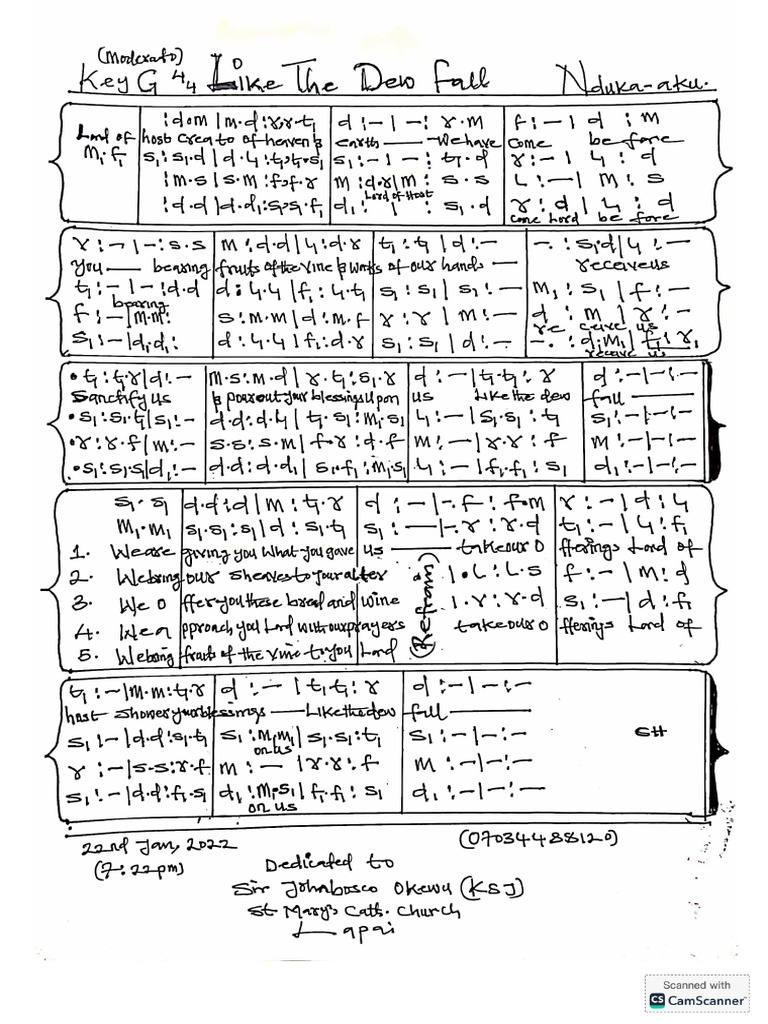 (Moderato)
Key G 4/4 Like The Dew Fall Nduka-aku.
:d.m | m.d:r,r.t₁ d :-|-: r.m f:-| d :m
Lord of host Creato of heaven & earth — We have Come be fore
M₁.f₁ s₁:s₁.d | d.l₁:t₁,t₁.s₁ s₁:-|-: t₁.d r:-| l₁ : d
:m.s | s.m:f,f.r m:d.r|m: s.s l:-| m: s
Lord of Host
:d.d | d.d₁:s₁,s₁.f₁ d₁: | : s₁.d r:d | l₁: d
Come Lord be fore
r:-|-:s.s m:d.d | l₁:d.r t₁:t₁ | d:- -.:s₁.d | l₁:-
You — bearing fruits of the vine & works of our hands — receive us
t₁:-|-:d.d d:l₁.l₁ | f₁:l₁.t₁ s₁:s₁ | s₁:- m₁:s₁ | f₁:-
bearing
f:-|m.m: s:m.m | d:m.f r:r | m:- d:m | r:-
re ceive us
s₁:-|d₁.d₁: d:l₁.l₁ | f₁:d.r s₁:s₁ | d:- -.:d₁.m₁ | f₁:r₁
receive us
.t₁:t₁.r | d:- m.s:m.d | r.t₁:s₁.r d:-|t₁.t₁:r d:-|-:-
Sanctify us & pour out your blessings Upon us Like the dew fall —
.s₁:s₁.t₁ | s₁:- d.d:d.l₁ | t₁.s₁:m₁.s₁ l₁:-|s₁.s₁:t₁ s₁:-|-:-
.r:r.f | m:- s.s:s.m | f.r:d.f m:-|r.r:f m:-|-:-
.s₁:s₁.s₁ | d₁:- d.d:d.d₁ | s₁.f₁:m₁.s₁ l₁:-|f₁.f₁:s₁ d₁:-|-:-
s₁.s₁ d.d:d | m:t₁.r d:-|-.f:f.m r:-| d:l₁
m₁.m₁ s₁.s₁:s₁ | d:s₁.t₁ s₁:—|-.r:r.d t₁:-| l₁:f₁
1. We are giving you What you gave us — take our O fferings Lord of
2. We bring our sheaves to your alter |.l:l.s f:-| m:d
3. We O ffer you these bread and wine |.r:r.d s₁:-| d:f₁
(Refrain)
4. We a pproach you Lord with our prayers take our O fferings Lord of
5. We bring fruits of the vine to you Lord
t₁:-|m.m:t₁.r d:-| t₁.t₁:r d:-|-:-
host Shower your blessings — Like the dew fall —
s₁:-|d.d:s₁.t₁ s₁:m₁.m₁ | s₁.s₁:t₁ s₁:-|-:-
on us
r:-|s.s:r.f m:-|r.r:f m:-|-:-
s₁:-|d.d:f₁.s₁ d₁:m₁.s₁ | f₁.f₁:s₁ d₁:-|-:-
on us
22nd Jan, 2022 (07034488120)
(7:22pm)
Dedicated to
Sir Johnbosco Okewu (KSJ)
St Mary's Cath. Church
Lapai
Scanned with
CS CamScanner